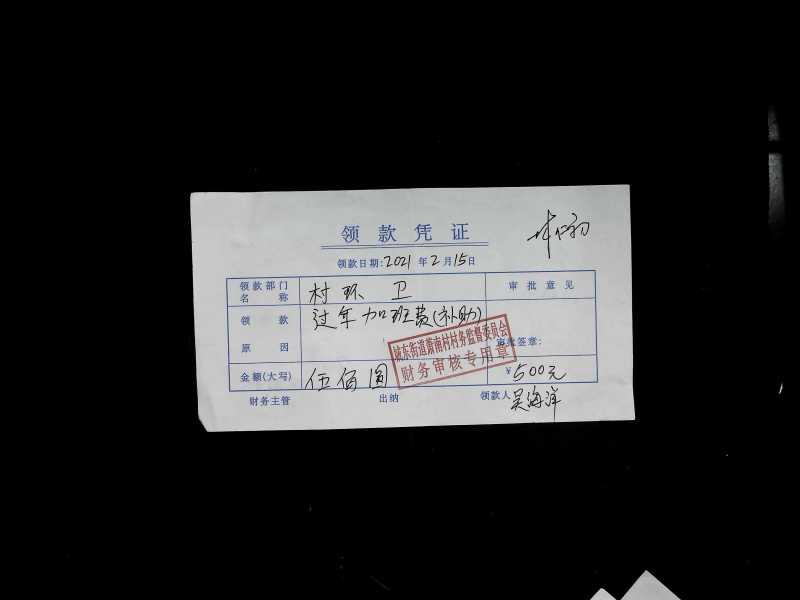 领款凭证
领款日期:2021年2月15日
领款部门名称 村环卫 审批意见
领款原因 过年加班费(补助) 审批签章:
城东街道 南村村务监督委员会
财务审核专用章
金额(大写) 伍佰圆 ¥500元
财务主管 出纳 领款人 吴海洋